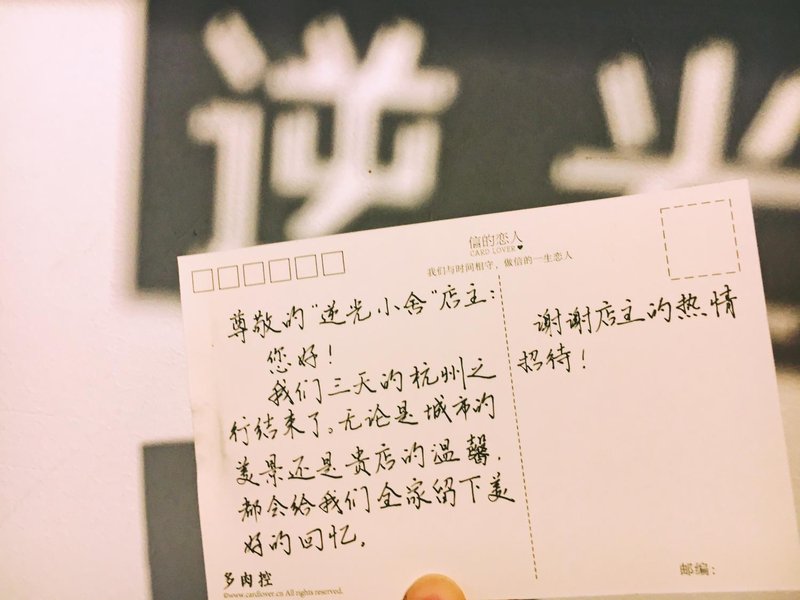 逆光
信的恋人
CARD LOVER
我们与时间相守，做信的一生恋人
尊敬的“逆光小舍”店主：
您好！
我们三天的杭州之
行结束了。无论是城市的
美景还是贵店的温馨，
都会给我们全家留下美
好的回忆。
谢谢店主的热情
招待！
多肉控
©www.cardlover.cn All rights reserved.
邮编：